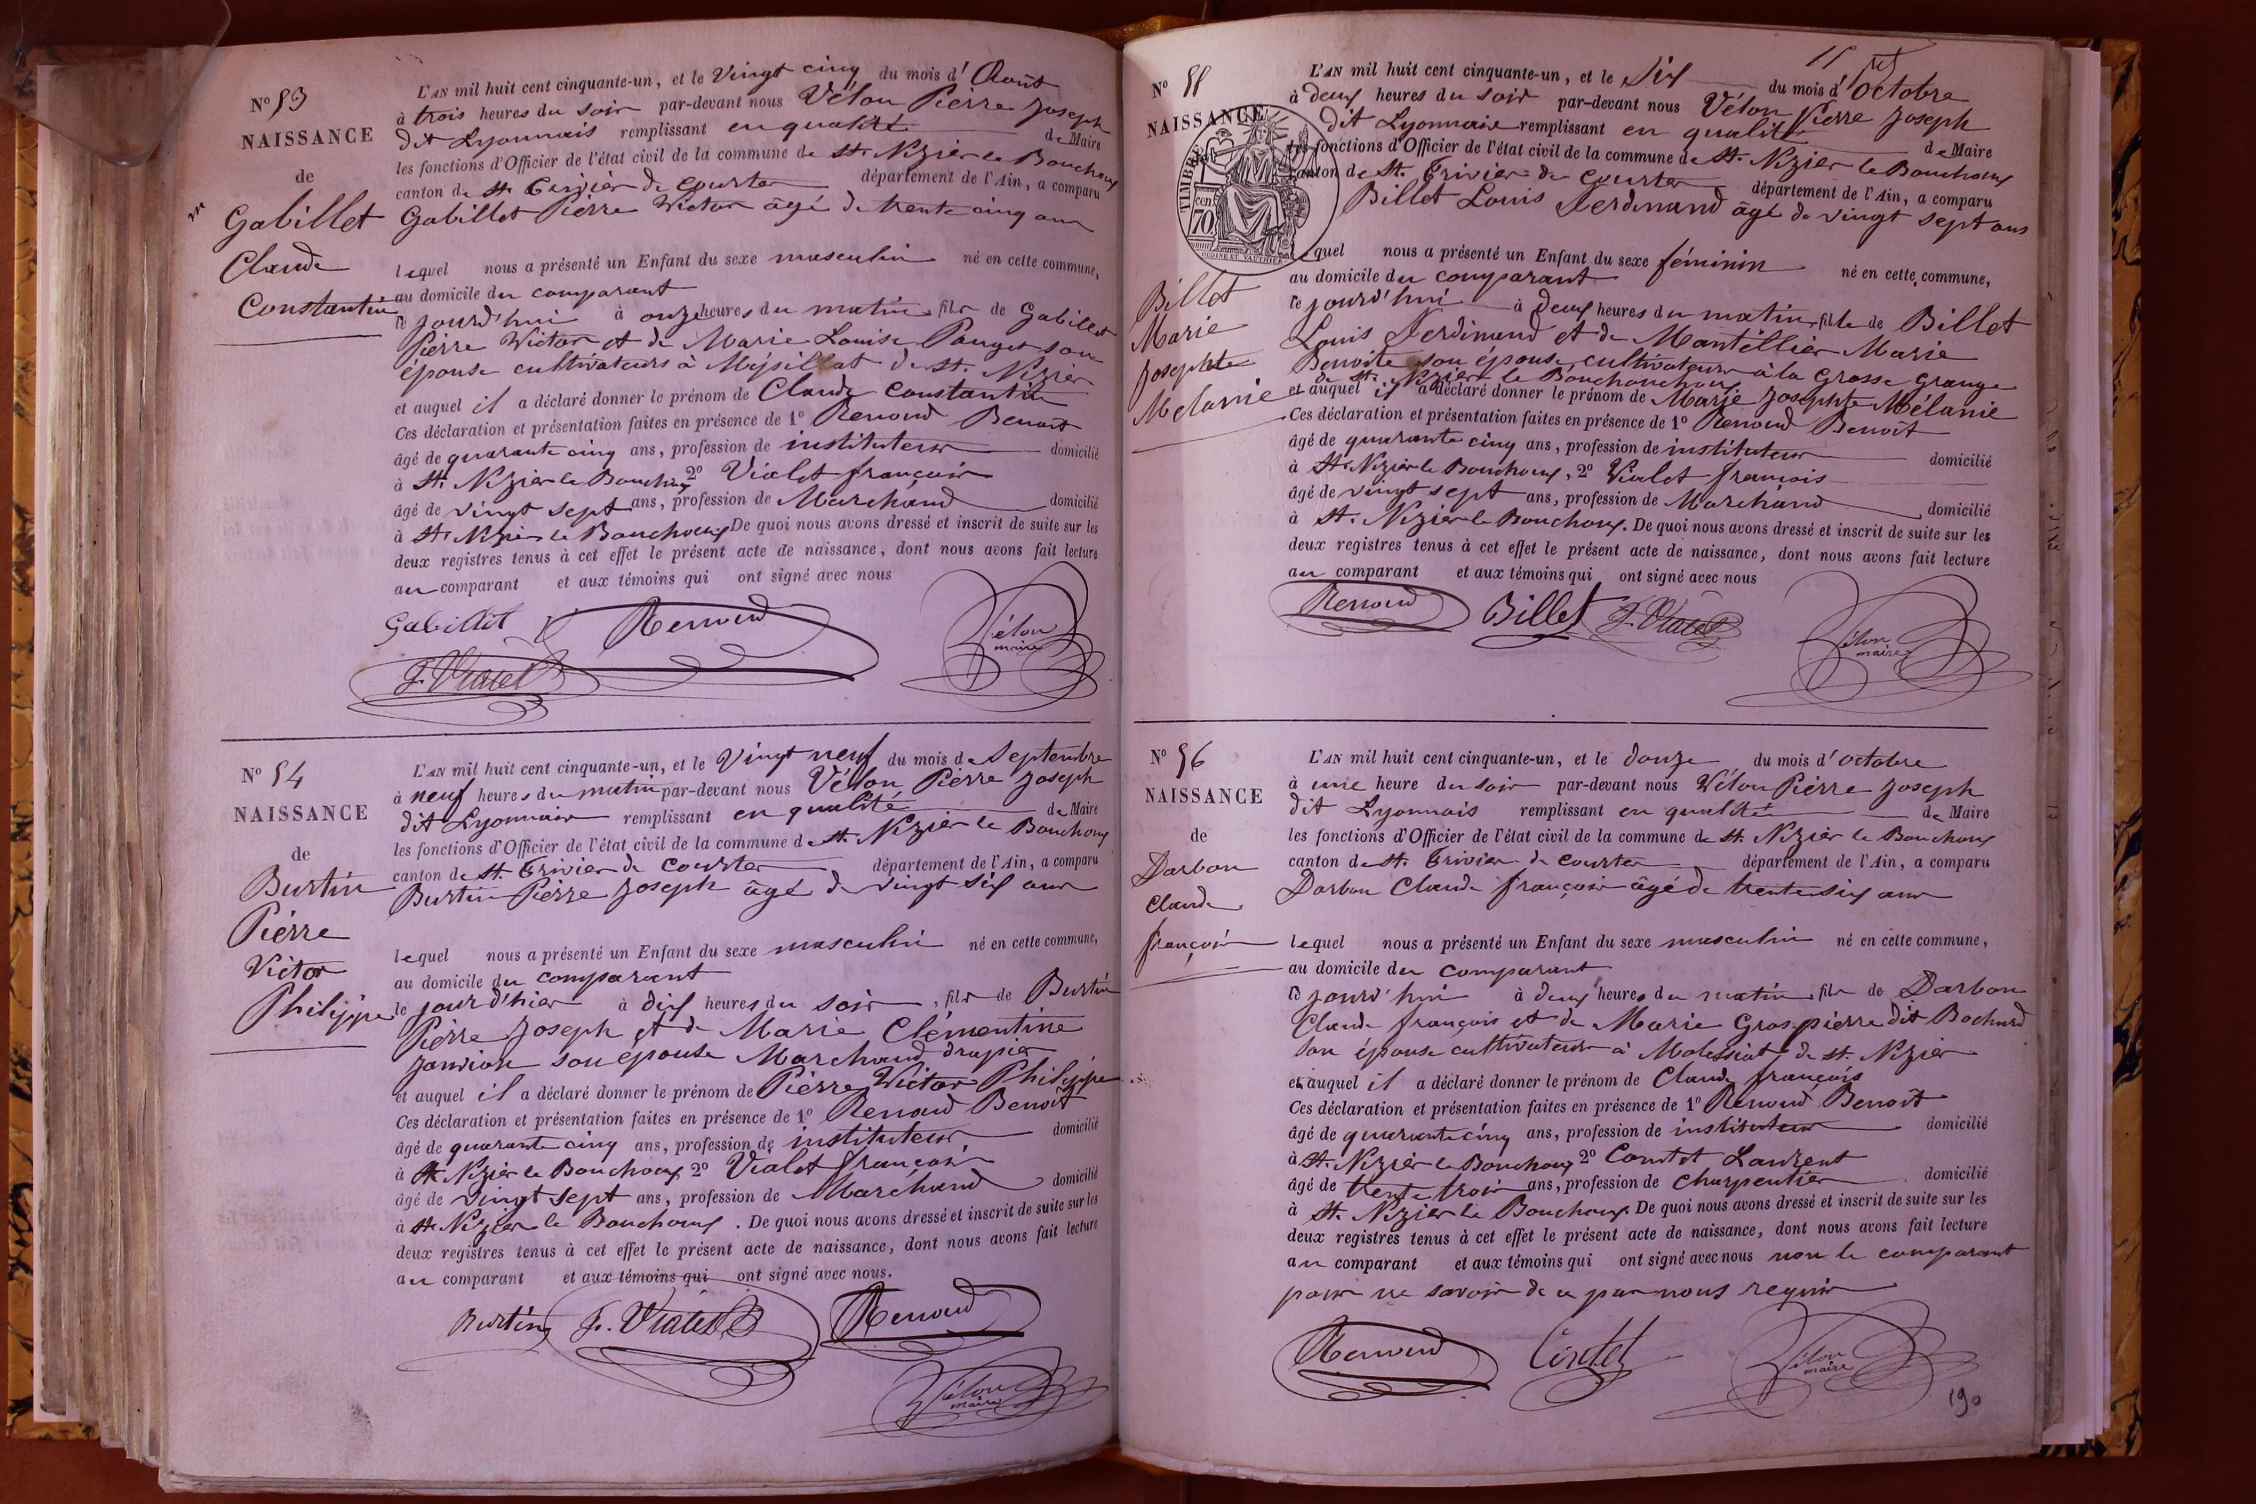 N° 53
NAISSANCE
de
Gabillet
Claude
Constantin
L'AN mil huit cent cinquante-un, et le Vingt cinq du mois d'Août
à trois heures du soir par-devant nous Vélon Pierre Joseph
dit Lyonnais remplissant en qualité de Maire
les fonctions d'Officier de l'état civil de la commune de St. Nizier le Bouchoux
canton de St. Trivier de Courtes département de l'Ain, a comparu
Gabillet Pierre Victor âgé de trente cinq ans
lequel nous a présenté un Enfant du sexe masculin né en cette commune,
au domicile du comparant
le jourd'hui à onze heures du matin, fils de Gabillet
Pierre Victor et de Marie Louise Pauget son
épouse cultivateurs à Mépillat de St. Nizier
et auquel il a déclaré donner le prénom de Claude Constantin
Ces déclaration et présentation faites en présence de 1° Renoud Benoît
âgé de quarante cinq ans, profession de instituteur domicilié
à St. Nizier le Bouchoux 2° Vialet françois
âgé de vingt sept ans, profession de Marchand domicilié
à St. Nizier le Bouchoux De quoi nous avons dressé et inscrit de suite sur les
deux registres tenus à cet effet le présent acte de naissance, dont nous avons fait lecture
au comparant et aux témoins qui ont signé avec nous
Gabillet Renoud Vélon maire
f. Vialet
N° 54
NAISSANCE
de
Burtin
Pierre
Victor
Philippe
L'AN mil huit cent cinquante-un, et le Vingt neuf du mois de Septembre
à neuf heures du matin par-devant nous Vélon Pierre Joseph
dit Lyonnais remplissant en qualité de Maire
les fonctions d'Officier de l'état civil de la commune de St. Nizier le Bouchoux
canton de St. Trivier de Courtes département de l'Ain, a comparu
Burtin Pierre Joseph âgé de vingt six ans
lequel nous a présenté un Enfant du sexe masculin né en cette commune,
au domicile du comparant
le jour d'hier à dix heures du soir, fils de Burtin
Pierre Joseph et de Marie Clémentine
Janvion son épouse Marchand drapier
et auquel il a déclaré donner le prénom de Pierre Victor Philippe
Ces déclaration et présentation faites en présence de 1° Renoud Benoît
âgé de quarante cinq ans, profession de instituteur domicilié
à St. Nizier le Bouchoux 2° Vialet françois
âgé de vingt sept ans, profession de Marchand domicilié
à St. Nizier le Bouchoux. De quoi nous avons dressé et inscrit de suite sur les
deux registres tenus à cet effet le présent acte de naissance, dont nous avons fait lecture
au comparant et aux témoins qui ont signé avec nous.
Burtin f. Vialet Renoud
Vélon maire
N° 55
NAISSANCE
TIMBRE
70 cen
Billet
Marie
Josephte
Mélanie
L'AN mil huit cent cinquante-un, et le Six du mois d'Octobre
à deux heures du soir par-devant nous Vélon Pierre Joseph
dit Lyonnais remplissant en qualité de Maire
les fonctions d'Officier de l'état civil de la commune de St. Nizier le Bouchoux
canton de St. Trivier de Courtes département de l'Ain, a comparu
Billet Louis Ferdinand âgé de vingt sept ans
lequel nous a présenté un Enfant du sexe féminin né en cette commune,
au domicile du comparant
le jourd'hui à deux heures du matin, fille de Billet
Louis Ferdinand et de Mantellier Marie
Benoite son épouse, cultivateurs à la Grosse Grange
de St. Nizier le Bouchouchoux
et auquel il a déclaré donner le prénom de Marie Josephte Mélanie
Ces déclaration et présentation faites en présence de 1° Renoud Benoît
âgé de quarante cinq ans, profession de instituteur domicilié
à St. Nizier le Bouchoux, 2° Vialet françois
âgé de vingt sept ans, profession de Marchand domicilié
à St. Nizier le Bouchoux. De quoi nous avons dressé et inscrit de suite sur les
deux registres tenus à cet effet le présent acte de naissance, dont nous avons fait lecture
au comparant et aux témoins qui ont signé avec nous
Renoud Billet f. Vialet Vélon maire
N° 56
NAISSANCE
de
Darbon
Claude
françois
L'AN mil huit cent cinquante-un, et le douze du mois d'octobre
à une heure du soir par-devant nous Vélon Pierre Joseph
dit Lyonnais remplissant en qualité de Maire
les fonctions d'Officier de l'état civil de la commune de St. Nizier le Bouchoux
canton de St. Trivier de Courtes département de l'Ain, a comparu
Darbon Claude françois âgé de trente six ans
lequel nous a présenté un Enfant du sexe masculin né en cette commune,
au domicile du comparant
le jourd'hui à deux heures du matin, fils de Darbon
Claude françois et de Marie Grospierre dit Bochard
son épouse cultivateurs à Molessiat, de St. Nizier
et auquel il a déclaré donner le prénom de Claude françois
Ces déclaration et présentation faites en présence de 1° Renoud Benoît
âgé de quarante cinq ans, profession de instituteur domicilié
à St. Nizier le Bouchoux 2° Comtet Laurent
âgé de trente trois ans, profession de charpentier domicilié
à St. Nizier le Bouchoux. De quoi nous avons dressé et inscrit de suite sur les
deux registres tenus à cet effet le présent acte de naissance, dont nous avons fait lecture
au comparant et aux témoins qui ont signé avec nous non le comparant
pour ne savoir de ce par nous requis
Renoud Comtet Vélon maire
190